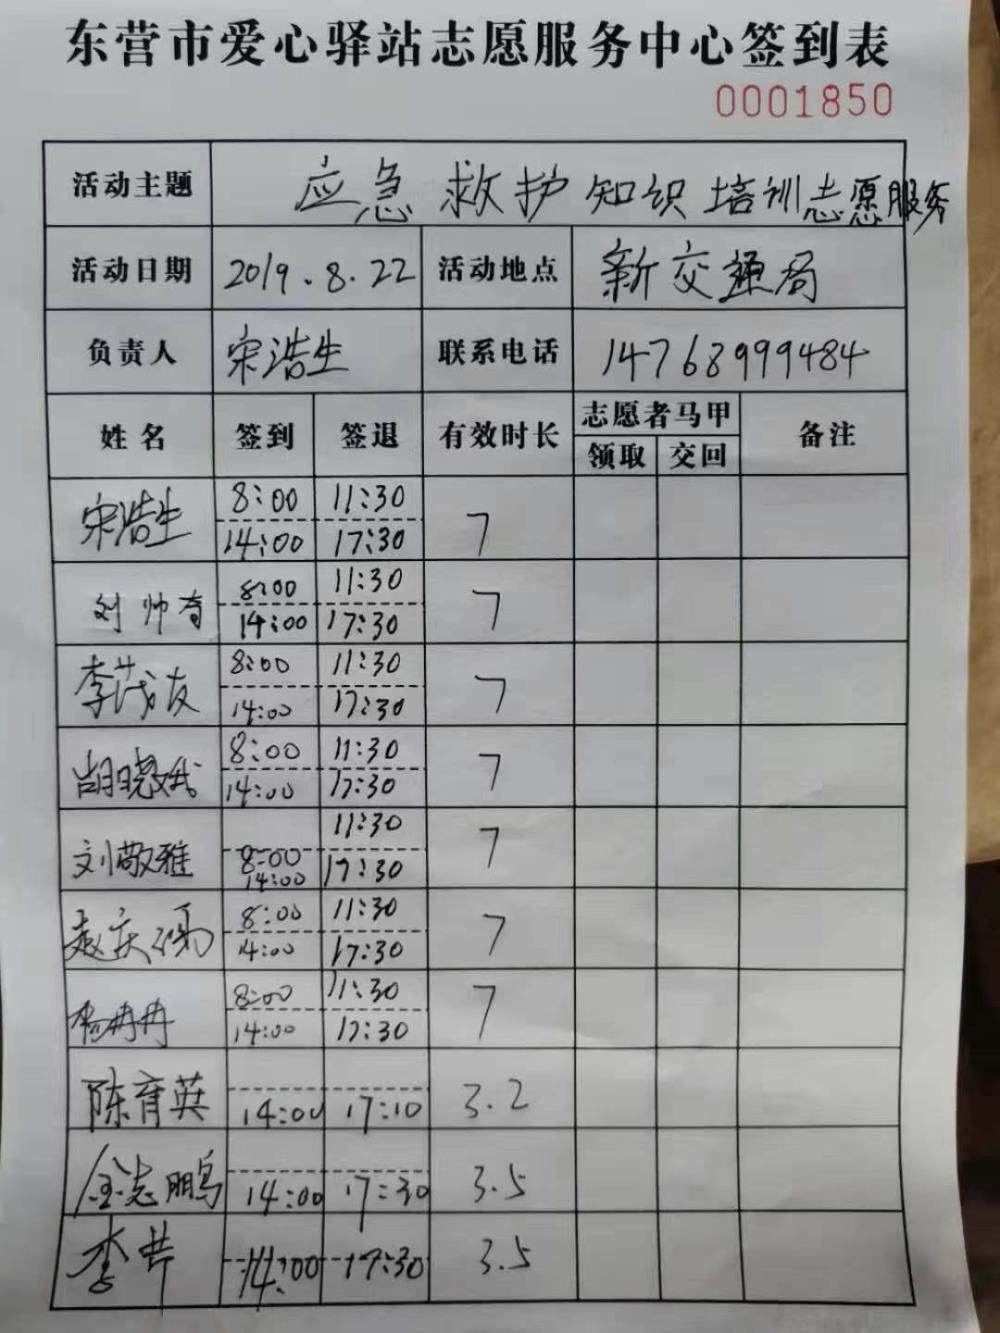 东营市爱心驿站志愿服务中心签到表
0001850
活动主题 应急救护知识培训志愿服务
活动日期 2019.8.22 活动地点 新交通局
负责人 宋浩生 联系电话 14768999484
姓名 签到 签退 有效时长 志愿者马甲 备注
领取 交回
宋浩生 8:00 11:30 7
14:00 17:30
刘帅奇 8:00 11:30 7
14:00 17:30
李茂友 8:00 11:30 7
14:00 17:30
胡晓 8:00 11:30 7
14:00 17:30
刘敬雅 11:30 7
8:00 17:30
14:00
赵庆 8:00 11:30 7
14:00 17:30
杨冉冉 8:00 11:30 7
14:00 17:30
陈育英 14:00 17:10 3.2
金志鹏 14:00 17:30 3.5
李 14:00 17:30 3.5